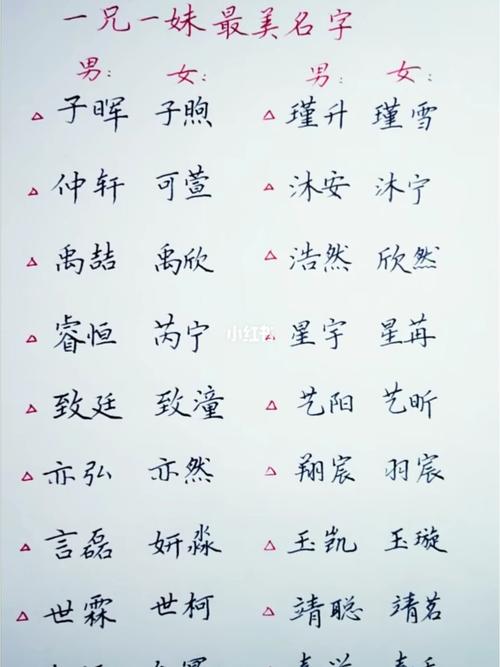 一兄一妹最美名字
男： 女： 男： 女：
子晖 子煦 瑾升 瑾雪
仲轩 可萱 沐安 沐宁
禹喆 禹欣 浩然 欣然
睿恒 芮宁 星宇 星苒
小红书
致廷 致潼 艺阳 艺昕
亦弘 亦然 翔宸 羽宸
言磊 妍淼 玉凯 玉璇
世霖 世柯 靖聪 靖茗